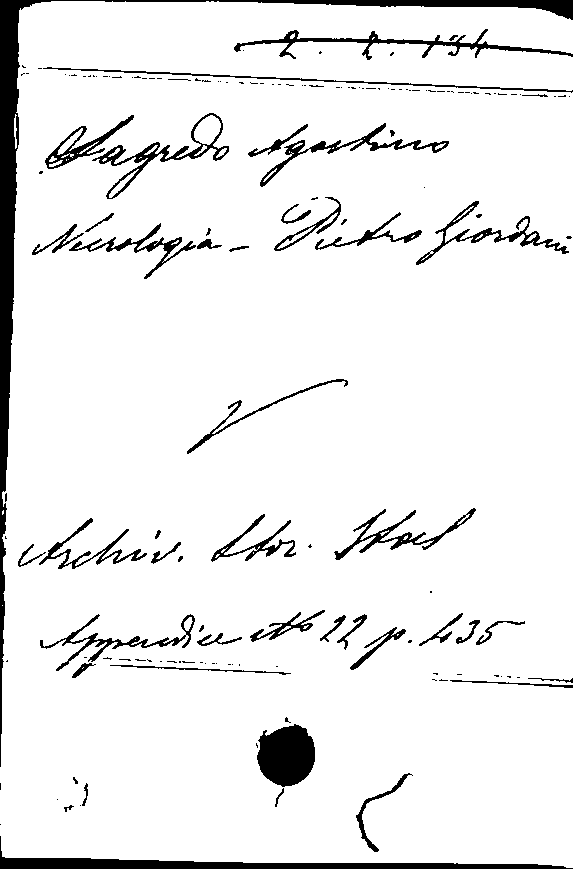 2. 2. 134
Sagredo Agostino
Necrologia - Pietro Giordani
Archiv. Stor. Ital
Appendice No 22 p. 435